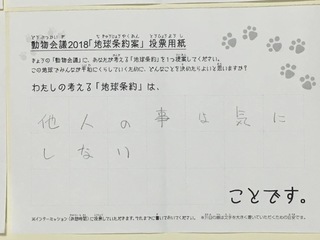 動物会議2018「地球条約案」投票用紙
きょうの「動物会議」に、あなたが考える「地球条約」を1つ提案してください。
この地球でみんなが平和にくらしていくために、どんなことを決めたらよいと思いますか?
わたしの考える「地球条約」は、
他人の事は気に
しない
ことです。